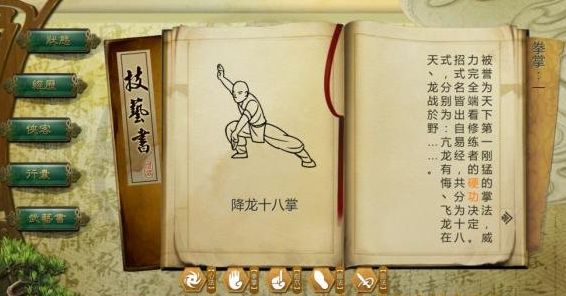 狀態
經歷
俠客
行囊
武藝書
技藝書
降龙十八掌
拳掌：一
被誉为天下第一刚猛的掌法，威
力完全端看修练者的硬功决定。
招式名皆出自易经，共分为十八
式，分别为：亢龙有悔、飞龙在
天、龙战於野……。